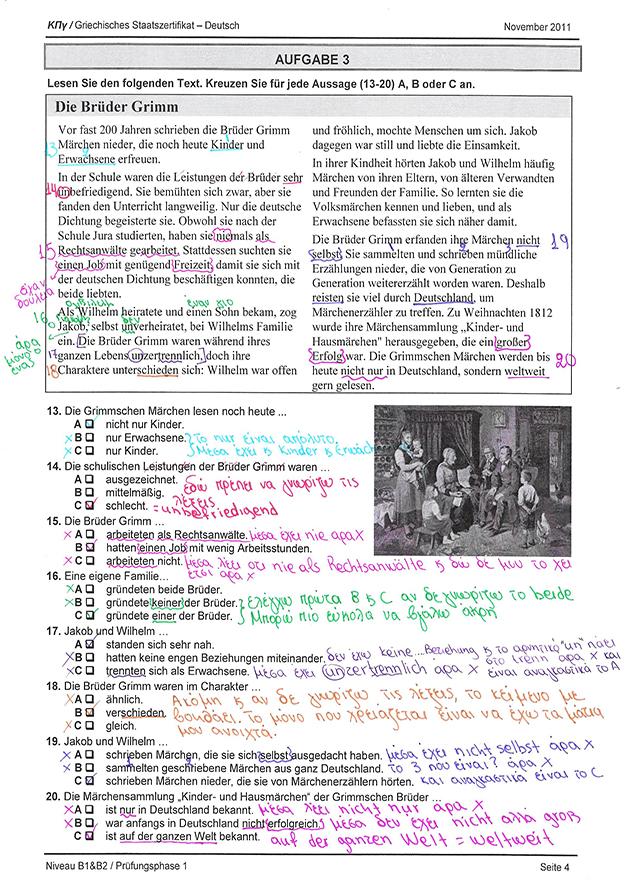 ΚΠγ / Griechisches Staatszertifikat – Deutsch
November 2011
AUFGABE 3
Lesen Sie den folgenden Text. Kreuzen Sie für jede Aussage (13-20) A, B oder C an.
Die Brüder Grimm
Vor fast 200 Jahren schrieben die Brüder Grimm
13 Märchen nieder, die noch heute Kinder und
Erwachsene erfreuen.
In der Schule waren die Leistungen der Brüder sehr
14 unbefriedigend. Sie bemühten sich zwar, aber sie
fanden den Unterricht langweilig. Nur die deutsche
Dichtung begeisterte sie. Obwohl sie nach der
Schule Jura studierten, haben sie niemals als
15 Rechtsanwälte gearbeitet. Stattdessen suchten sie
einen Job mit genügend Freizeit, damit sie sich mit
der deutschen Dichtung beschäftigen konnten, die
beide liebten.
Als Wilhelm heiratete und einen Sohn bekam, zog
16 Jakob, selbst unverheiratet, bei Wilhelms Familie
ein. Die Brüder Grimm waren während ihres
17 ganzen Lebens unzertrennlich, doch ihre
18 Charaktere unterschieden sich: Wilhelm war offen
άρα
μόνο
ένας
und fröhlich, mochte Menschen um sich. Jakob
dagegen war still und liebte die Einsamkeit.
In ihrer Kindheit hörten Jakob und Wilhelm häufig
Märchen von ihren Eltern, von älteren Verwandten
und Freunden der Familie. So lernten sie die
Volksmärchen kennen und lieben, und als
Erwachsene befassten sie sich näher damit.
Die Brüder Grimm erfanden ihre Märchen nicht 19
selbst. Sie sammelten und schrieben mündliche
Erzählungen nieder, die von Generation zu
Generation weitererzählt worden waren. Deshalb
reisten sie viel durch Deutschland, um
Märchenerzähler zu treffen. Zu Weihnachten 1812
wurde ihre Märchensammlung „Kinder- und
Hausmärchen" herausgegeben, die ein großer
Erfolg war. Die Grimmschen Märchen werden bis 20
heute nicht nur in Deutschland, sondern weltweit
gern gelesen.
13. Die Grimmschen Märchen lesen noch heute ...
A nicht nur Kinder.
x B nur Erwachsene. το nur είναι απόλυτο.
x C nur Kinder. Μέσα έχει & Kinder &
14. Die schulischen Leistungen der Brüder Grimm waren ...
A ausgezeichnet. εδώ πρέπει να γνωρίζω τις
B mittelmäßig. λέξεις
C schlecht. = unbefriedigend
15. Die Brüder Grimm ...
x A arbeiteten als Rechtsanwälte. μέσα έχει nie άρα x
B hatten einen Job mit wenig Arbeitsstunden.
x C arbeiteten nicht. μέσα λέει οτι nie als Rechtsanwälte & εδω δε μου το χει
έτσι άρα x
16. Eine eigene Familie...
x A gründeten beide Brüder.
x B gründete keiner der Brüder. Ελέγχω πρώτα B & C αν δε γνωρίζω το beide
C gründete einer der Brüder. Μπορώ πιο εύκολα να βγάλω άκρη
17. Jakob und Wilhelm ...
A standen sich sehr nah.
x B hatten keine engen Beziehungen miteinander. δεν έχω keine...Beziehung & το αρνητικό "un" πάει
στο trenn άρα x και
x C trennten sich als Erwachsene. μέσα έχει unzertrennlich άρα x είναι αναγκαστικά το A
18. Die Brüder Grimm waren im Charakter ...
x A ähnlich. Ακόμη & αν δε γνωρίζω τις λέξεις, το κείμενο με
B verschieden. βοηθάει. Το μόνο που χρειάζεται είναι να έχω τα μάτια
x C gleich. μου ανοιχτά.
19. Jakob und Wilhelm ...
x A schrieben Märchen, die sie sich selbst ausgedacht haben. μέσα έχει nicht selbst άρα x
x B sammelten geschriebene Märchen aus ganz Deutschland. άρα x
C schrieben Märchen nieder, die sie von Märchenerzählern hörten. και αναγκαστικά είναι το C
20. Die Märchensammlung „Kinder- und Hausmärchen" der Grimmschen Brüder ...
x A ist nur in Deutschland bekannt. μέσα λέει nicht nur άρα x
x B war anfangs in Deutschland nicht erfolgreich. μέσα δεν έχει nicht αλλά groß
C ist auf der ganzen Welt bekannt. auf der ganzen Welt = weltweit
Niveau B1&B2 / Prüfungsphase 1
Seite 4